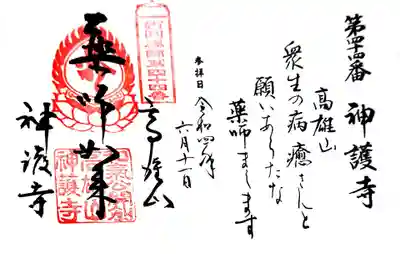 第四十四番 神護寺
高雄山
衆生の病癒さんと
願いあらたな
薬師まします
参拝日 令和四年
六月十一日
高雄山
薬師如来
神護寺
西国薬師第四十四番
神護寺